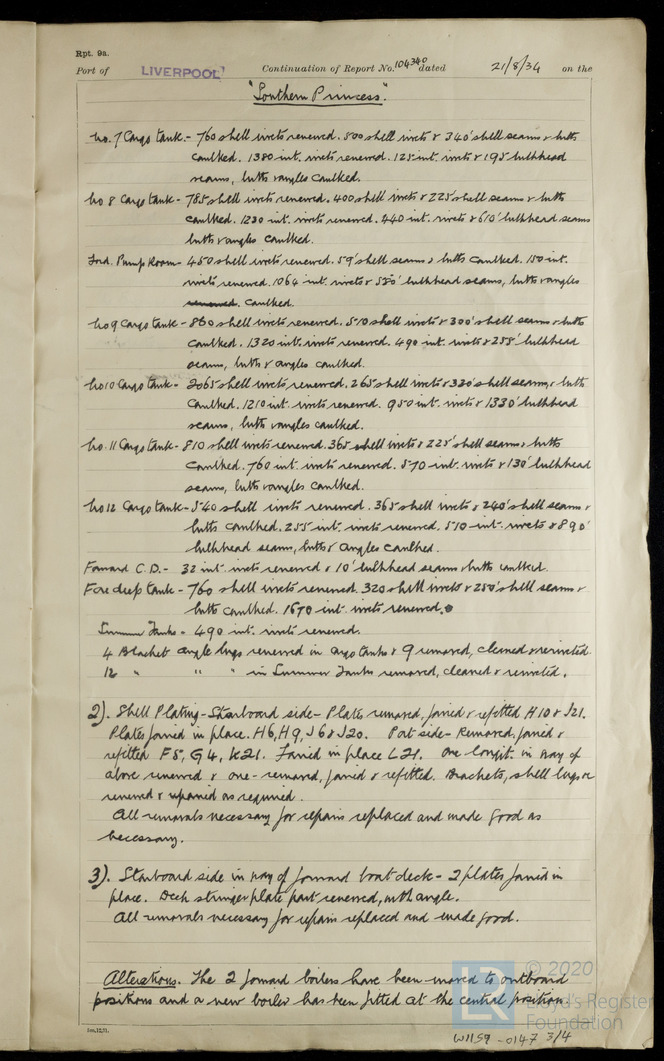 Rpt. 9a.
Port of LIVERPOOL Continuation of Report No. 104340 dated 21/8/34 on the
"Southern Princess".
No. 7 Cargo tank. - 760 shell rivets renewed. 500 shell rivets & 340' shell seams & butts
caulked. 1380 int. rivets renewed. 125 int. rivets & 195 bulkhead
seams, butts & angles caulked.
No 8 Cargo tank - 785 shell rivets renewed. 400 shell rivets & 225' shell seams & butts
caulked. 1230 int. rivets renewed. 440 int. rivets & 610' bulkhead seams
butts & angles caulked.
Ford. Pump Room - 450 shell rivets renewed. 59' shell seams & butts caulked. 150 int.
rivets renewed. 1064 int. rivets & 580' bulkhead seams, butts & angles
renewed. caulked.
No 9 Cargo tank - 860 shell rivets renewed. 510 shell rivets & 300' shell seams & butts
caulked. 1320 int. rivets renewed. 490 int. rivets & 255' bulkhead
seams, butts & angles caulked.
No 10 Cargo tank - 2065 shell rivets renewed. 265 shell rivets & 320' shell seams, & butts
caulked. 1210 int. rivets renewed. 950 int. rivets & 1330' bulkhead
seams, butts & angles caulked.
No. 11 Cargo tank - 810 shell rivets renewed. 365 shell rivets & 225' shell seams & butts
caulked. 760 int. rivets renewed. 570 int. rivets & 130' bulkhead
seams, butts & angles caulked.
No 12 Cargo tank - 540 shell rivets renewed. 365 shell rivets & 240' shell seams &
butts caulked. 255 int. rivets renewed. 510 int. rivets & 890'
bulkhead seams, butts & angles caulked.
Forward C.D. - 32 int. rivets renewed & 10' bulkhead seams & butts caulked.
Fore deep tank - 760 shell rivets renewed. 320 shell rivets & 250' shell seams &
butts caulked. 1670 int. rivets renewed.
Summer Tanks - 490 int. rivets renewed.
4 Bracket angle lugs renewed in cargo tanks & 9 removed, cleaned & reriveted.
12 " " " in Summer Tanks removed, cleaned & reriveted.
2). Shell Plating - Starboard side - Plates removed, faired & refitted H10 & J21.
Plates faired in place. H6, H9, J6 & J20. Port side - Removed, faired &
refitted F5, G4, K21. Faired in place L21. One longit. in way of
above renewed & one - removed, faired & refitted. Brackets, shell lugs &c
renewed & repaired as required.
All removals necessary for repairs replaced and made good as
necessary.
3). Starboard side in way of forward boat deck - 2 plates faired in
place. Deck stringer plate part renewed, with angle.
All removals necessary for repairs replaced and made good.
Alterations. The 2 forward boilers have been moved to outboard
positions and a new boiler has been fitted at the central position
© 2020
Lloyd's Register
Foundation
W1159 - 0147 3/4